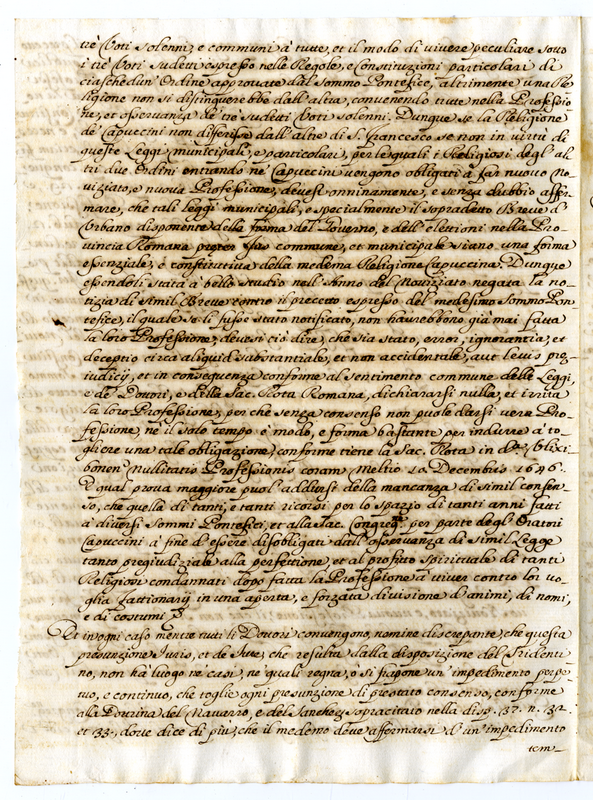 trè Voti solenni, e communi à tutte, et il modo di vivere peculiare sotto
i trè Voti sudetti espresso nelle Regole, e Constituzioni particolari di
ciaschedun' Ordine approvate dal Sommo Pontefice, altrimente una Re-
ligione non si distinguerebbe dall'altra, convenendo tutte nella Professio-
ne, et osservanza de' trè sudetti Voti solenni. Dunque se la Religione
de' Capuccini non differisce dall'altre di S. Francesco se non in virtù di
queste Leggi municipali, e particolari, per le quali i Religiosi degl'al-
tri due Ordini entrando ne' Capuccini vengono obligati à far nuovo No-
viziato, e nuova Professione, devesi onninamente, e senza dubbio affer-
mare, che tali leggi municipali, e specialmente il sopradetto Breve d'
Urbano disponente della forma del Governo, e dell'elettioni nella Pro-
vincia Romana preter Jus commune, et municipale siano una forma
essenziale, e constitutiva della medema Religione Capuccina. Dunque
essendoli stata à bello studio nell'Anno del Noviziato negata la no-
tizia di simil Breve contro il precetto espresso del medesimo Sommo Pon-
tefice, il quale se li fusse stato notificato, non haurebbono già mai fatta
la loro Professione, devesi ciò dire, che sia stato, error, ignorantia, et
deceptio circa aliquid substantiale, et non accidentale, aut levis pre-
iudicij, et in consequenza conforme al sentimento commune delle Leggi,
e de' Dottori, e della Sac. Rota Romana, dichiararsi nulla, et irrita
la loro Professione, per che senza consenso non puole darsi vera Pro-
fessione, nè il solo tempo è modo, e forma bastante per indurre à to-
gliere una tale obligazione, conforme tiene la Sac. Rota in d.a Ulixi-
bonen Nullitatis Professionis coram Meltio 10 Decembris 1646.
E qual prova maggiore puol' addursi della mancanza di simil consen-
so, che quella di tanti, e tanti ricorsi per lo spazio di tanti anni fatti
à diversi Sommi Pontefici, et alla Sac. Congreg.e per parte degl'Oratori
Capuccini à fine d'essere disobligati dall'osservanza di simil Legge
tanto pregiudiziale alla perfettione, et al profitto spirituale di tanti
Religiosi condannati dopo fatta la Professione à viver contro lor vo-
glia fattionarij in una aperta, e forzata divisione d'animi, di nomi,
e di costumi?
Et in ogni caso mentre tutti li Dottori convengono, nemine discrepante, che questa
presunzione Juris, et de Jure, che resulta dalla disposizione del Tridenti-
no, non hà luogo ne' casi, ne' quali regna, ò si frapone un'impedimento perpe-
tuo, e continuo, che toglie ogni presunzione di prestato consenso, conforme
alla Dottrina del Navarro, e del Sanchez sopracitato nella disp. 37. n. 32.
et 33., dove dice di più, che il medemo deve affermarsi d'un'impedimento
tem-